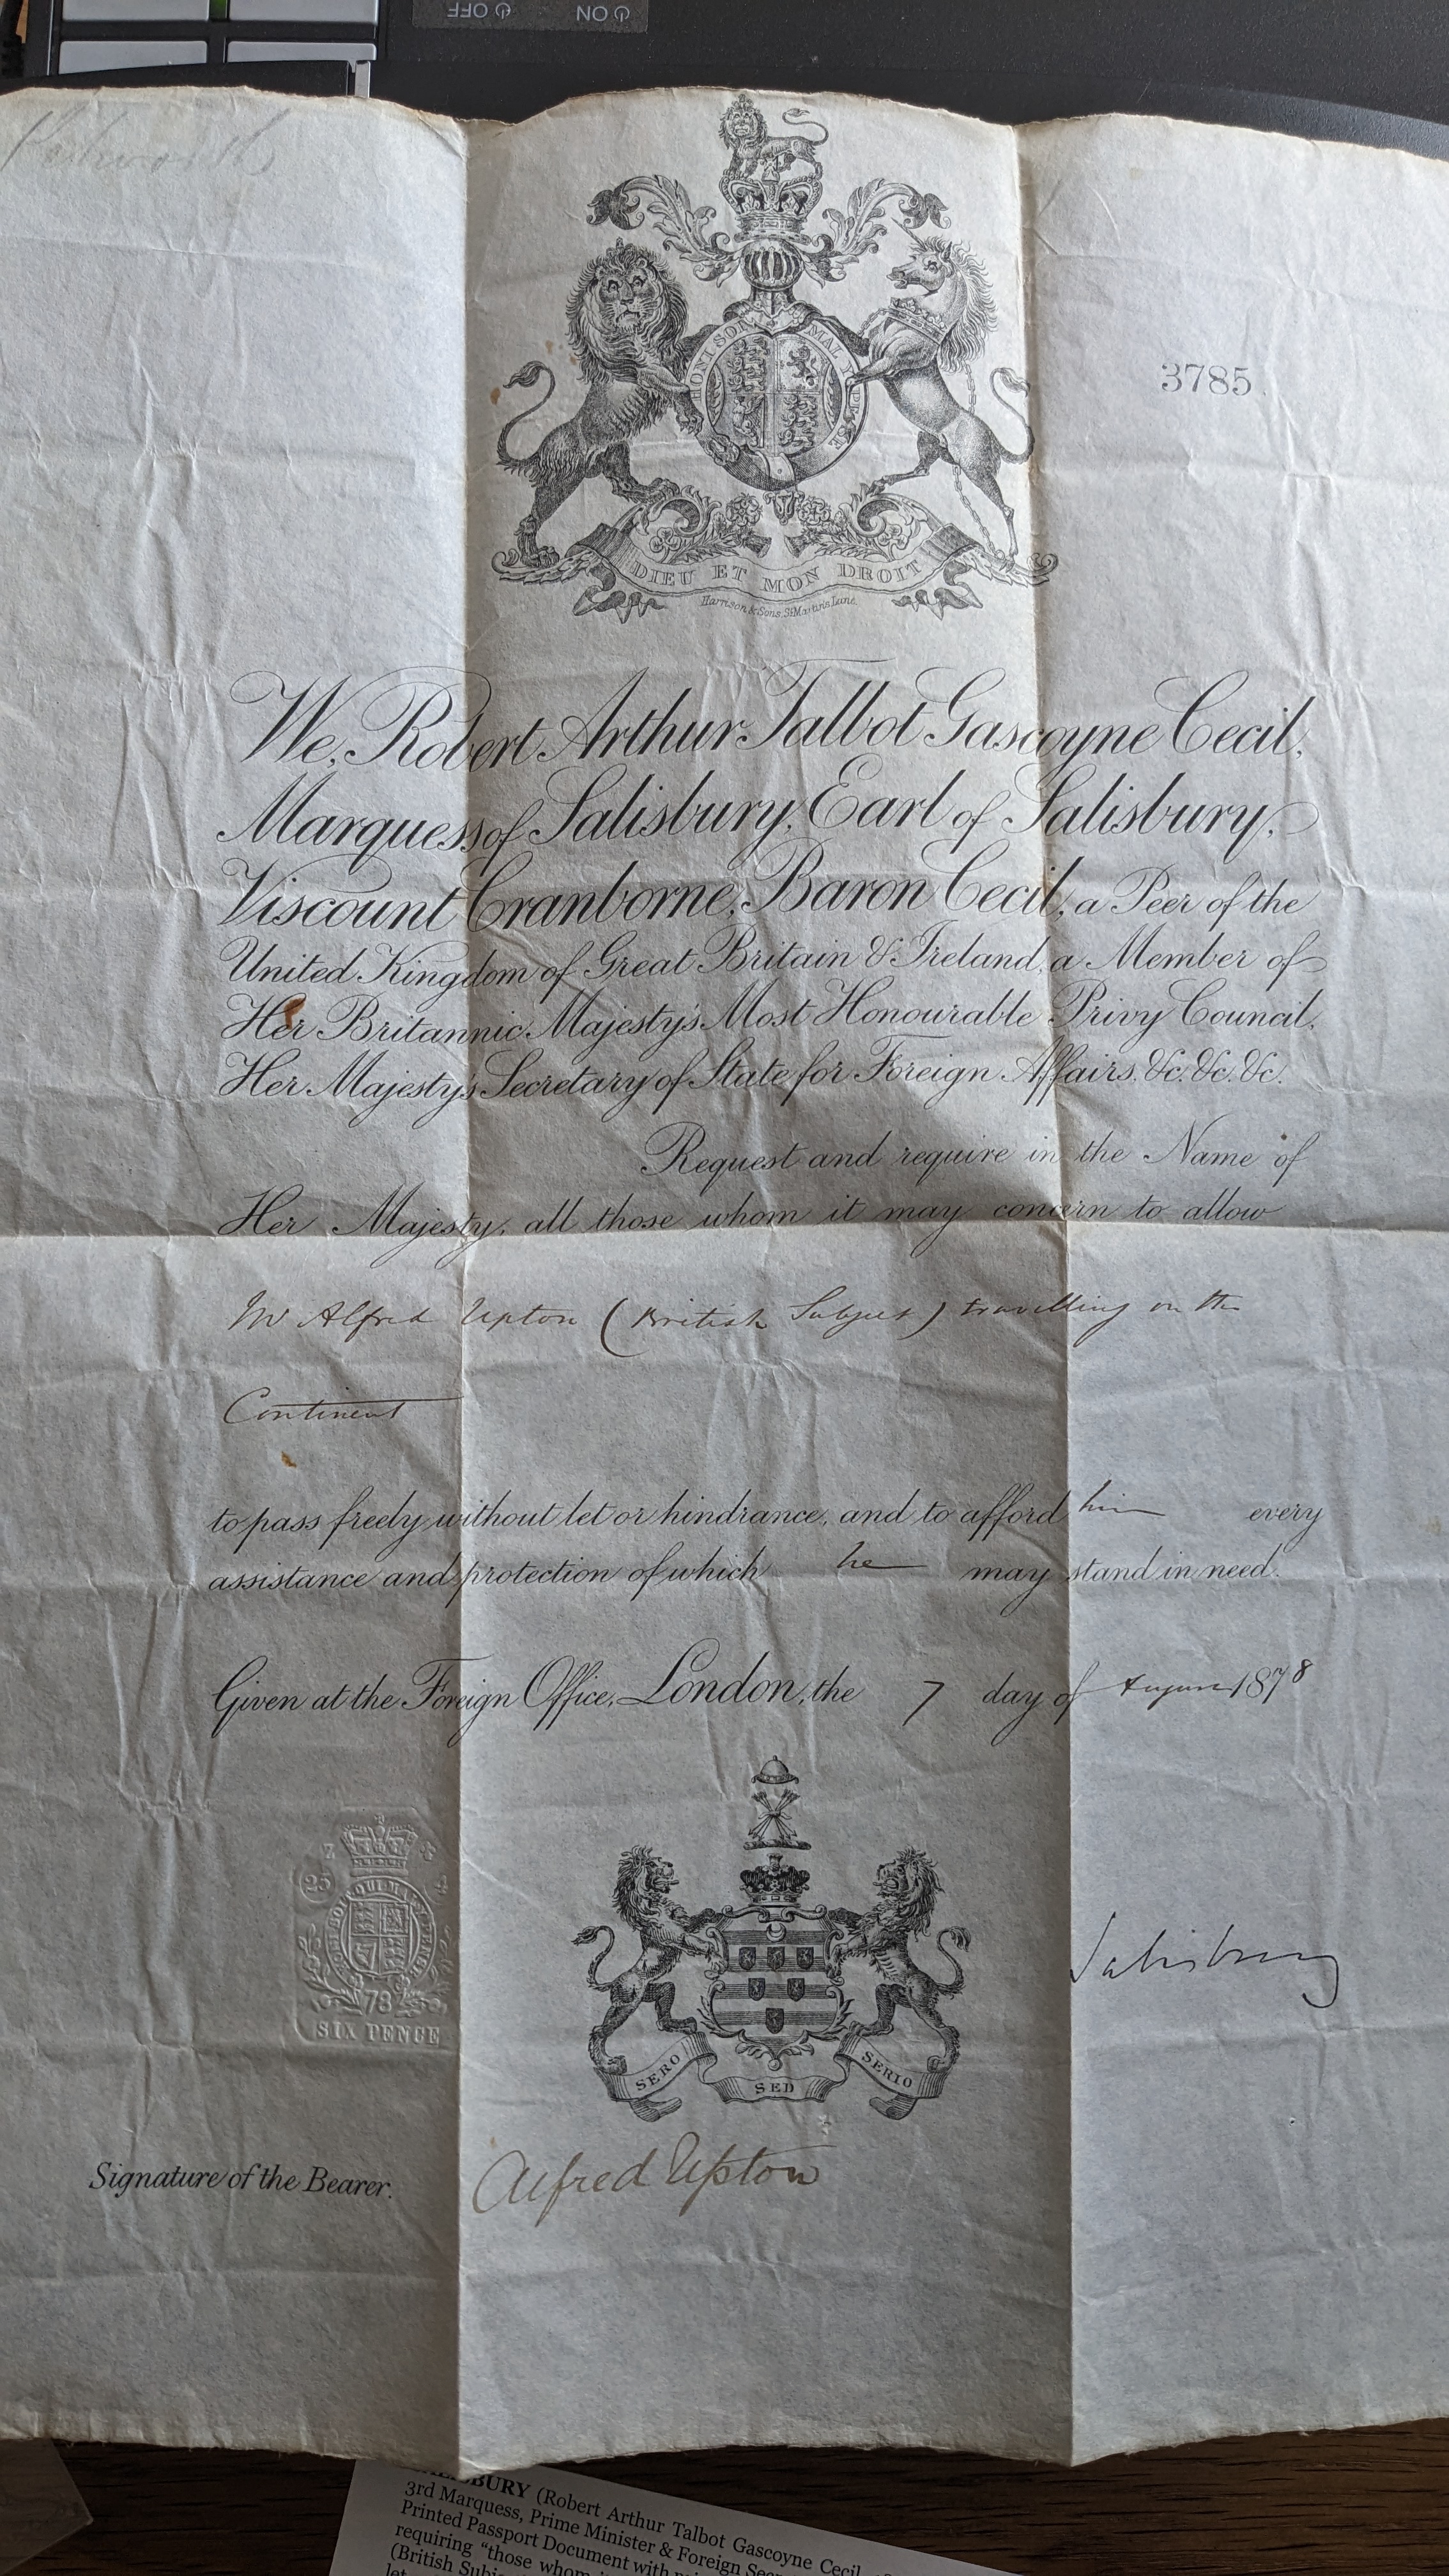 OFF
ON
3785
HONI SOI
MAL Y
DIEU ET MON DROIT
Harrison & Sons, St Martin's Lane.
We, Robert Arthur Talbot Gascoyne Cecil,
Marquess of Salisbury, Earl of Salisbury,
Viscount Cranborne, Baron Cecil, a Peer of the
United Kingdom of Great Britain & Ireland, a Member of
Her Britannic Majesty's Most Honourable Privy Council,
Her Majesty's Secretary of State for Foreign Affairs, &c. &c. &c.
Request and require in the Name of
Her Majesty, all those whom it may concern to allow
Mr Alfred Upton (British Subject) travelling on the
Continent
to pass freely without let or hindrance, and to afford him every
assistance and protection of which he may stand in need.
Given at the Foreign Office, London, the 7 day of August 1878
25
78
SIX PENCE
SERO SED SERIO
Salisbury
Signature of the Bearer. Alfred Upton
SALISBURY (Robert Arthur Talbot Gascoyne Cecil,
3rd Marquess, Prime Minister & Foreign
Printed Passport Document with
requiring "those whom
(British
let